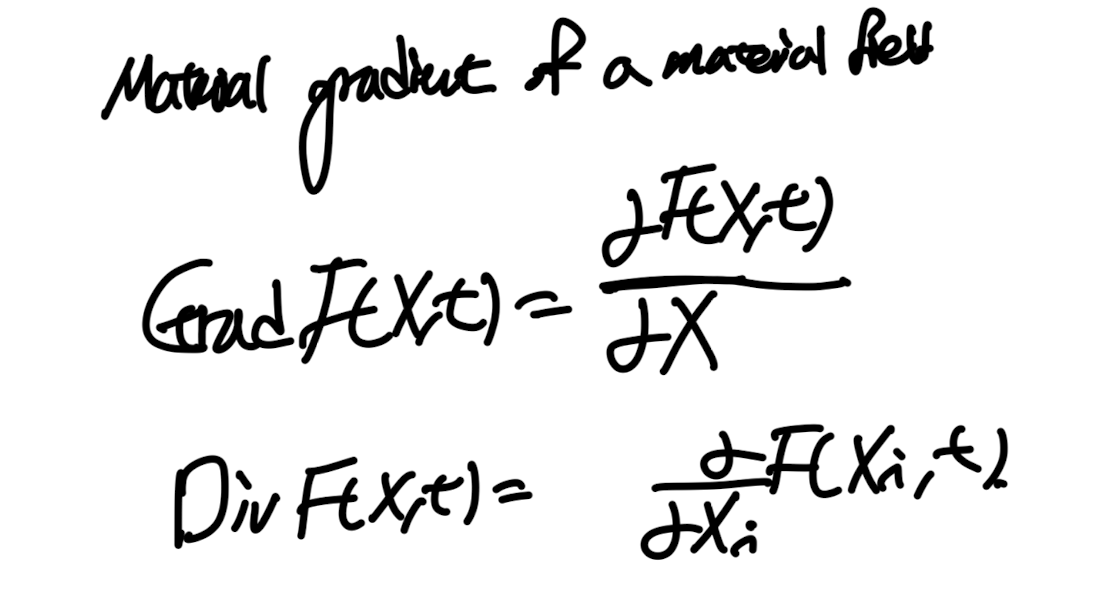 Material gradient of a material field
Grad F(X,t) = ∂F(X,t) / ∂X
Div F(X,t) = ∂/∂Xi F(Xi,t)